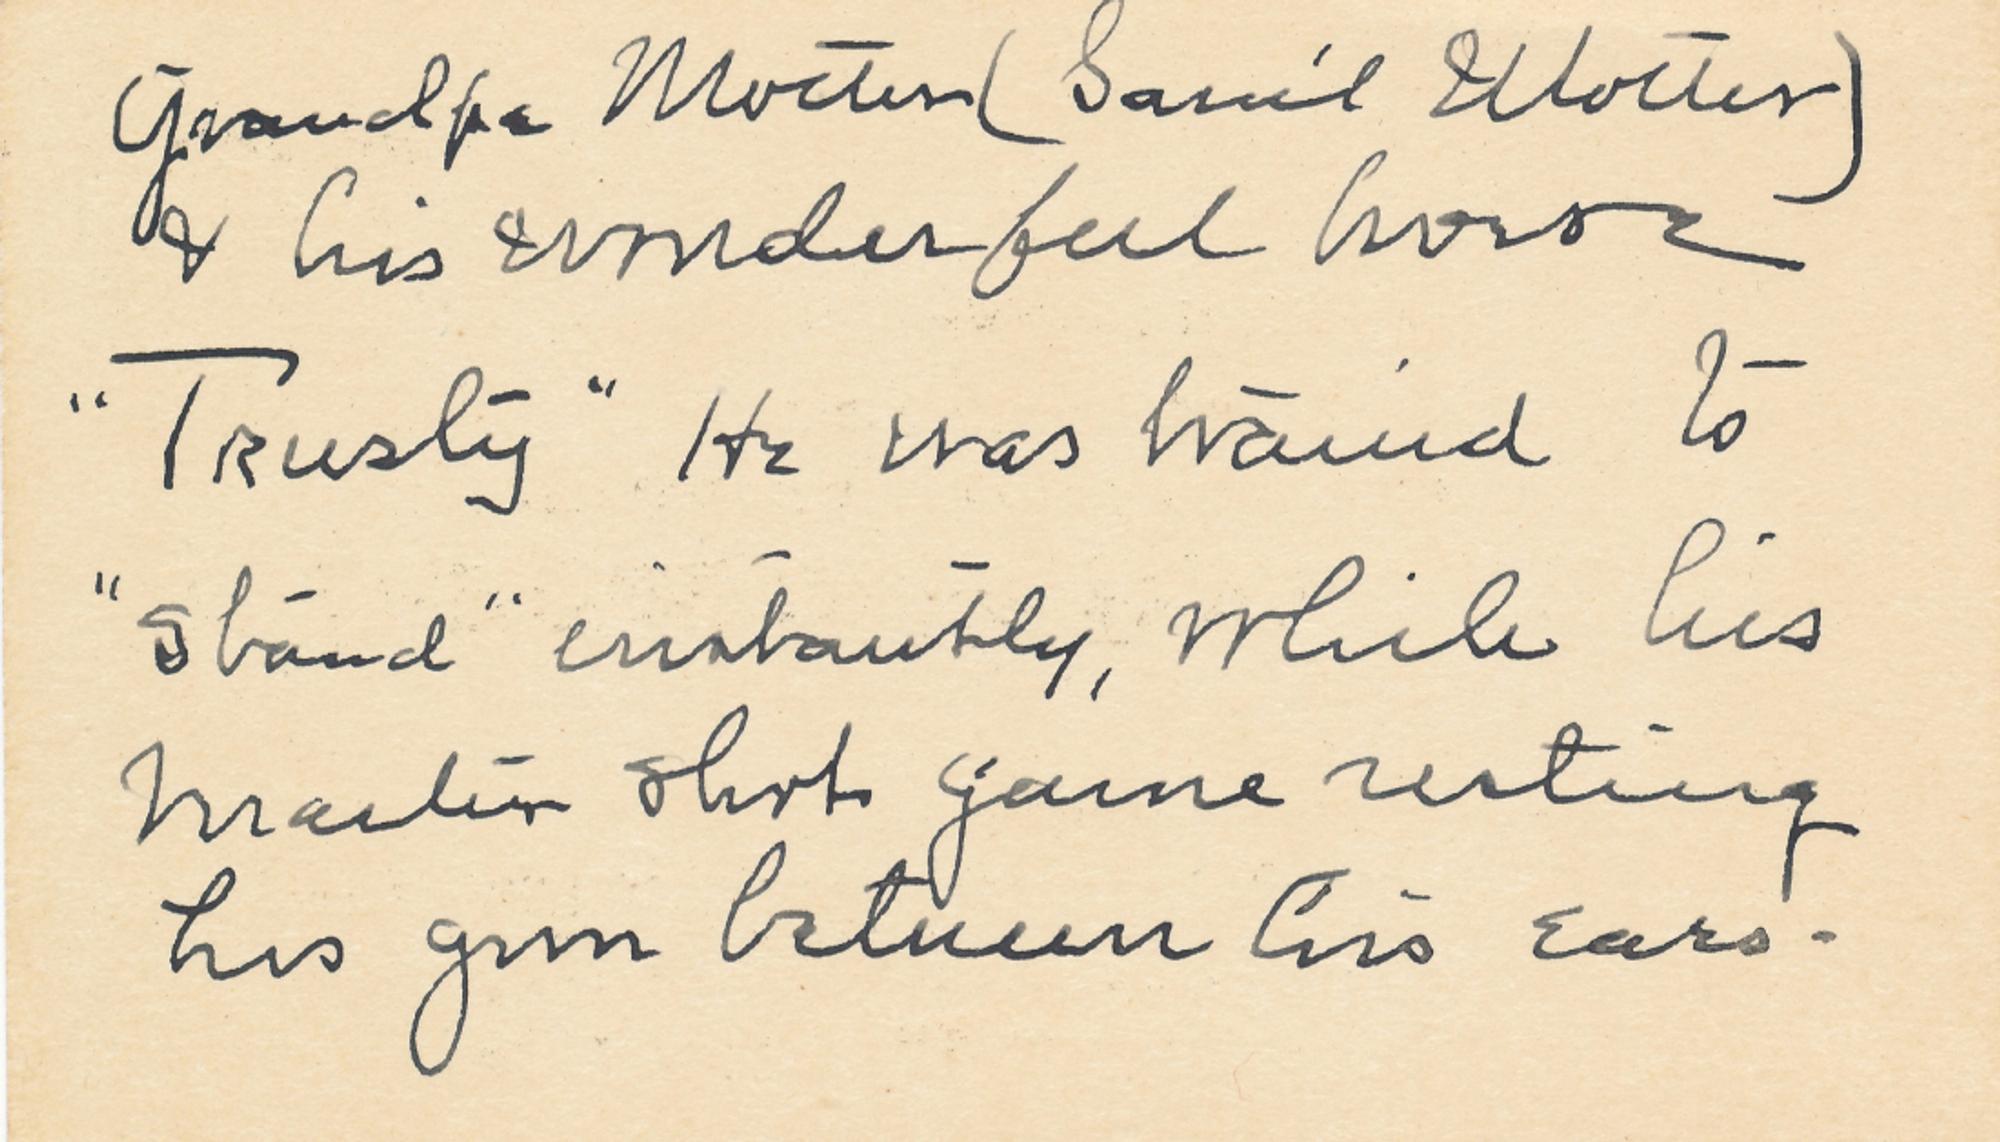 Grandpa Motter (Sam'l Motter)
& his wonderful horse
"Trusty" He was traind to
"Stand" instantly, while his
Master shot game resting
his gun between his ears.